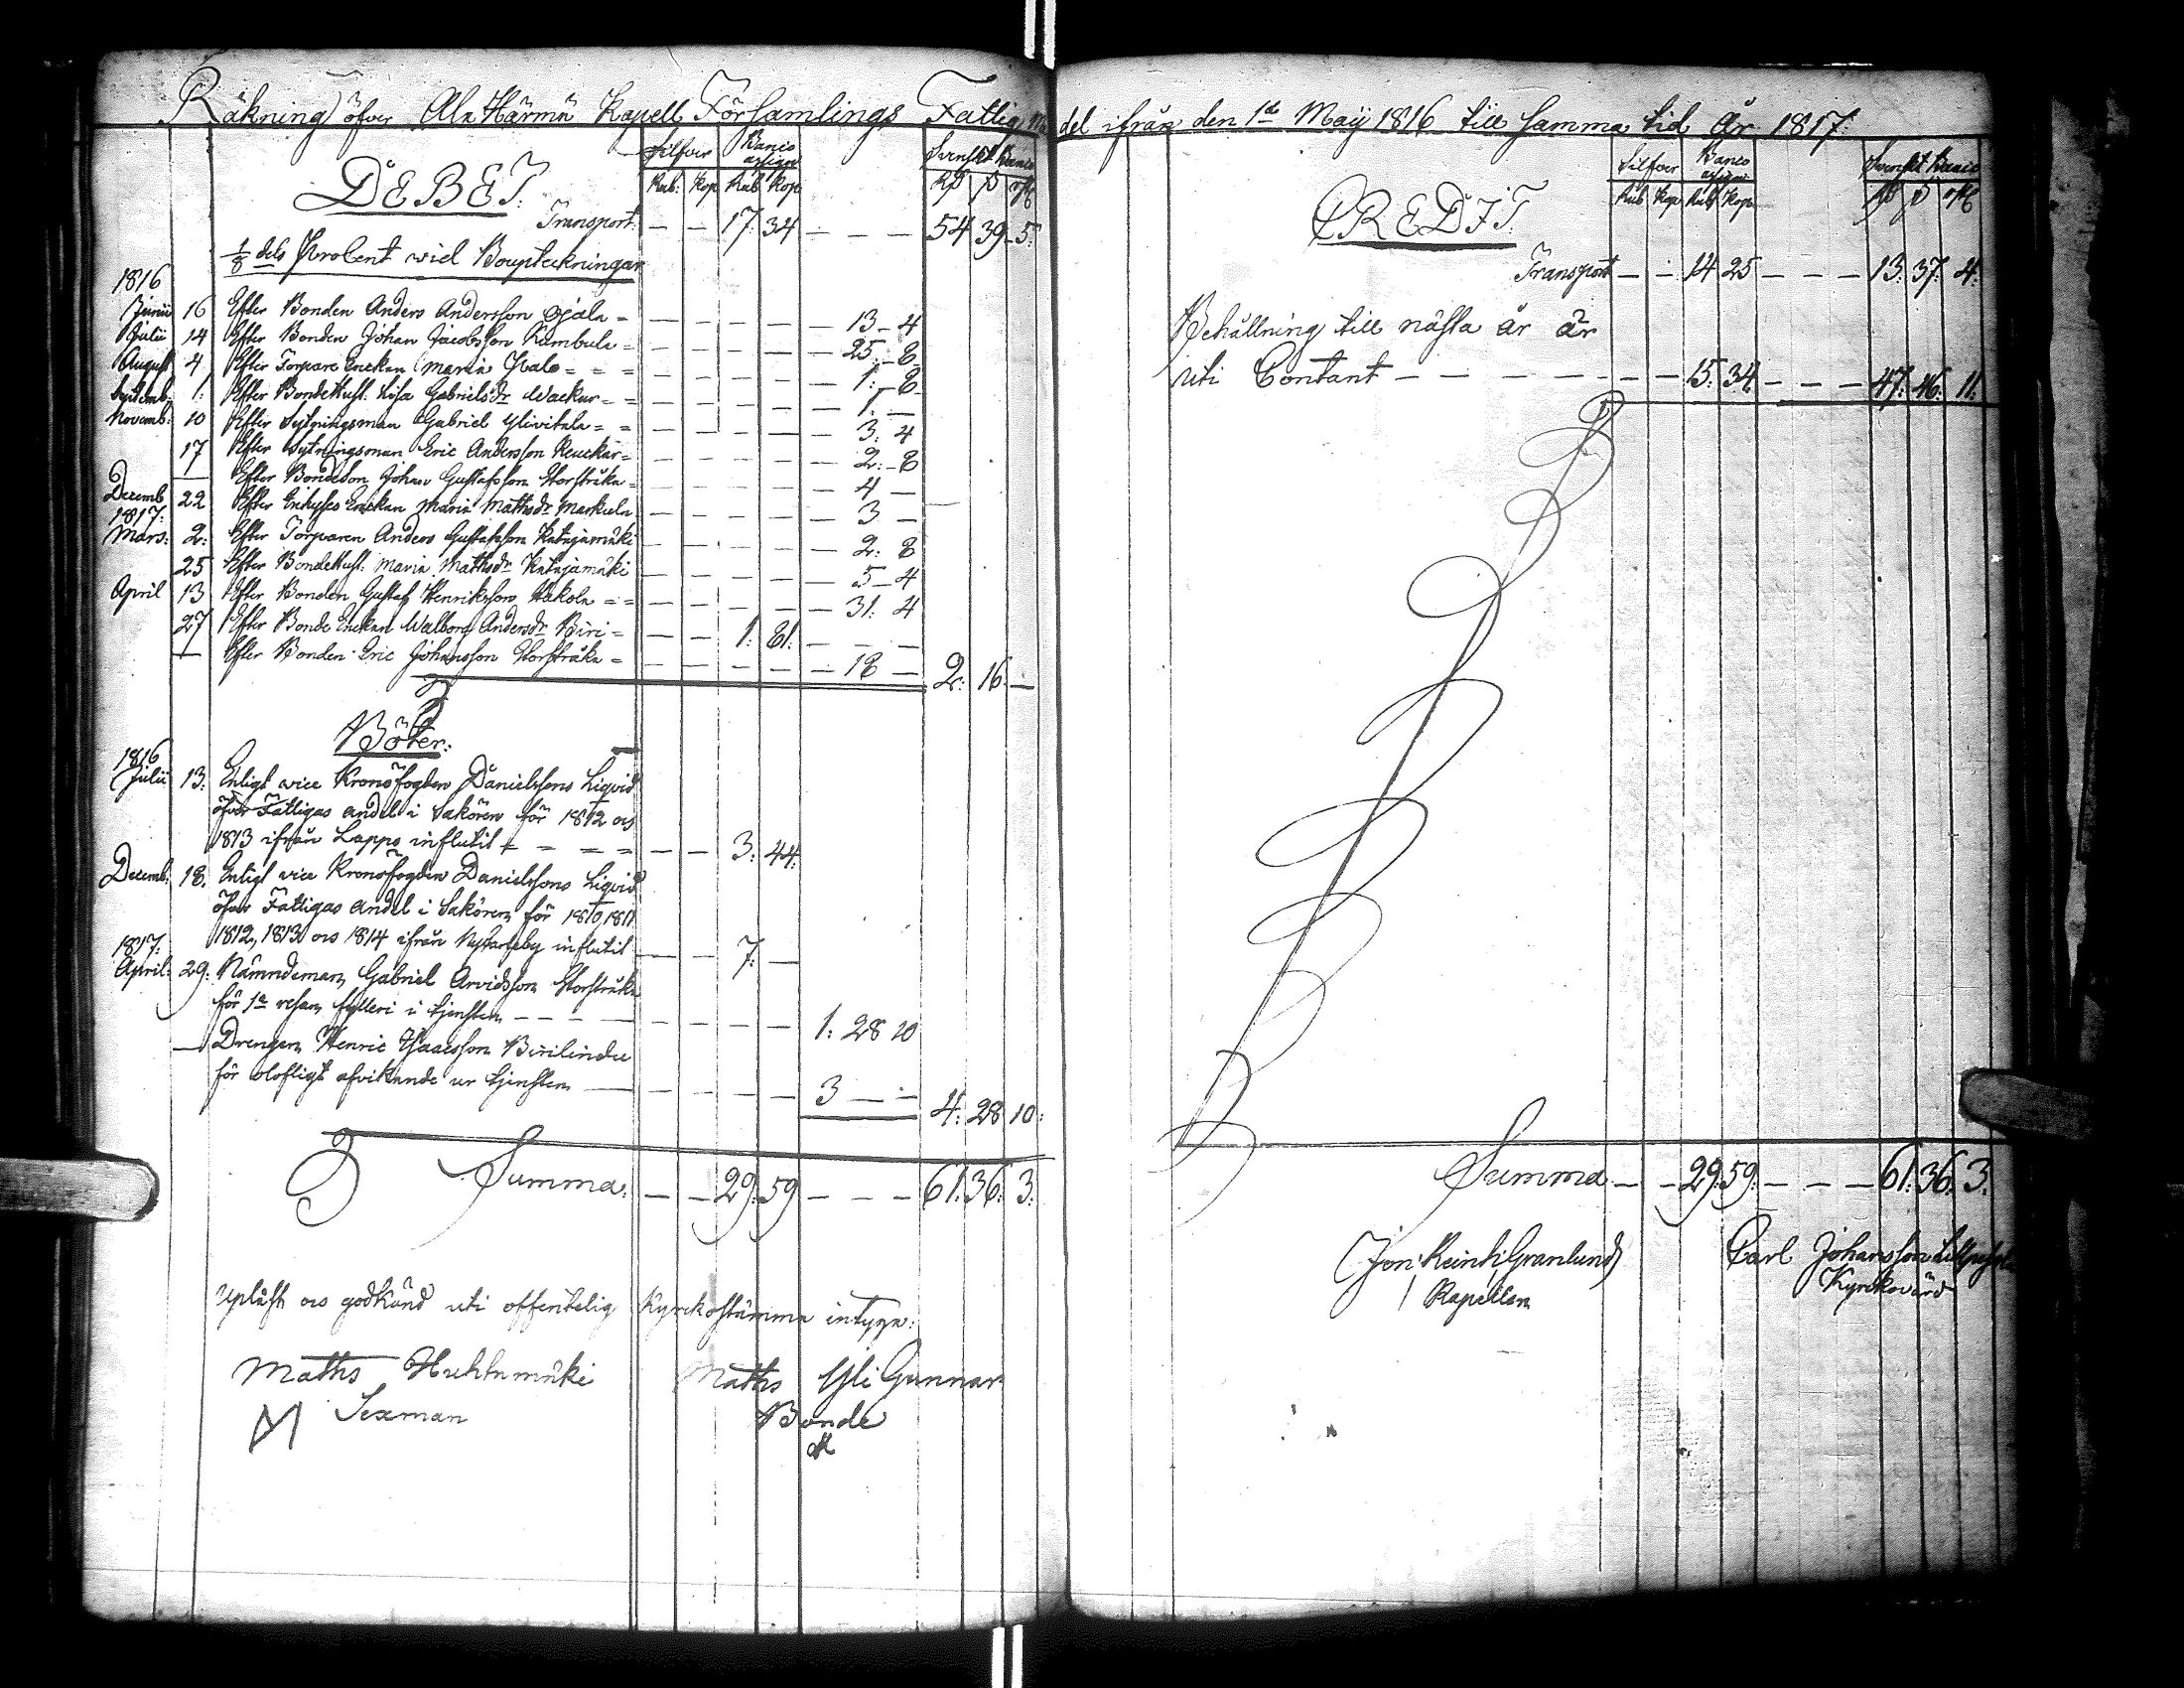 Räkning öfver Ala Härmä Kapell Församlings Fattig Me
DEBET.
Silfver Banco assign Svenskt Banco
Rub: Kop Rub Kop Rß ß rst
Transport: — — 17. 34 — — — 54 39 5.
1/8 dels Procent wid Bouptekningar
1816
Junii 16 Efter Bonden Anders Andersson Ojala = — — — — — 13 — 4
Julii 14 Efter Bonden Johan Jacobsson Kumbula = — — — — — 25. — 8
August 4 Efter Torpare Enckan Maria Jcalo = = = — — — — — 1: — 8
Septemb. 1. Efter Bondehust. Lisa Gabrielsdr Wackur = = — — — — — 1. —
Novemb: 10 Efter Sytningsman Gabriel Ylivitala = = — — — — — 3: 4
17 Efter Sytningsman Eric Andersson Reuckar = — — — — — 2: — 8
— Efter Bondeson Johan Gustafsson Storstråka = — — — — — 4 —
Decemb 22 Efter Enckan Maria Mathsdr Markula — — — — — 3 —
1817:
Mars: 2: Efter Torparen Anders Gustafsson Katajamäki — — — — — 2: 8
25 Efter Bondehust: Maria Mathsdr Katajamäki — — — — — 5 — 4
April 13 Efter Bonden Gustaf Henriksson Hakola = = — — — — — 31: 4
27 Efter Bonde Enckan Walborg Andersdr Biri = — — 1: 81. — — —
— Efter Bonden Eric Johansson Storstråka = — — — — — 18 — 2: 16. —
Böter:
1816
Julii 13: Enligt vice Kronofogden Danielssons Liqvid
öfver Fattigas andel i Sakören för 1812 os
1813 ifrån Lappo influtit = = = = — — 3: 44:
Decemb: 18. Enligt vice Kronofogden Danielssons Liqvid
öfver Fattigas andel i Sakören för 1810 1811
1812, 1813 os 1814 ifrån Nykarleby influtit — — 7: —
1817:
April: 29: Nämndeman Gabriel Arvidsson Storstråka
för 1a resan fylleri i tjensten — — — — — — — — 1: 28 10
— Drengen Henric Isaacsson Birilindu
för olofligt afvikande ur tjensten — — — — — 3 — — 4: 28 10:
Summa: — — 29: 59 — — — 61: 36: 3:
Upläst os godkänd uti offentelig Kyrckostämma intyga:
Maths Huhtamäki
Sexman
Maths Yli Gunnar
Bonde
del ifrån den 1de Maij 1816 till samma tid År 1817:
CREDIT.
Silfver Banco assign Svenskt Banco
Rub Kop Rub Kop Rß ß rst
Transport — — 14 25 — — — 13: 37: 4:
Behållning till nästa år är
uti Contant — — — — — — — 15: 34 — — — 47: 46: 11:
Summa — — 29: 59: — — — 61: 36: 3:
Jon: Reinh: Granlund
Kapellan
Carl Johansson
Kyrckovärd